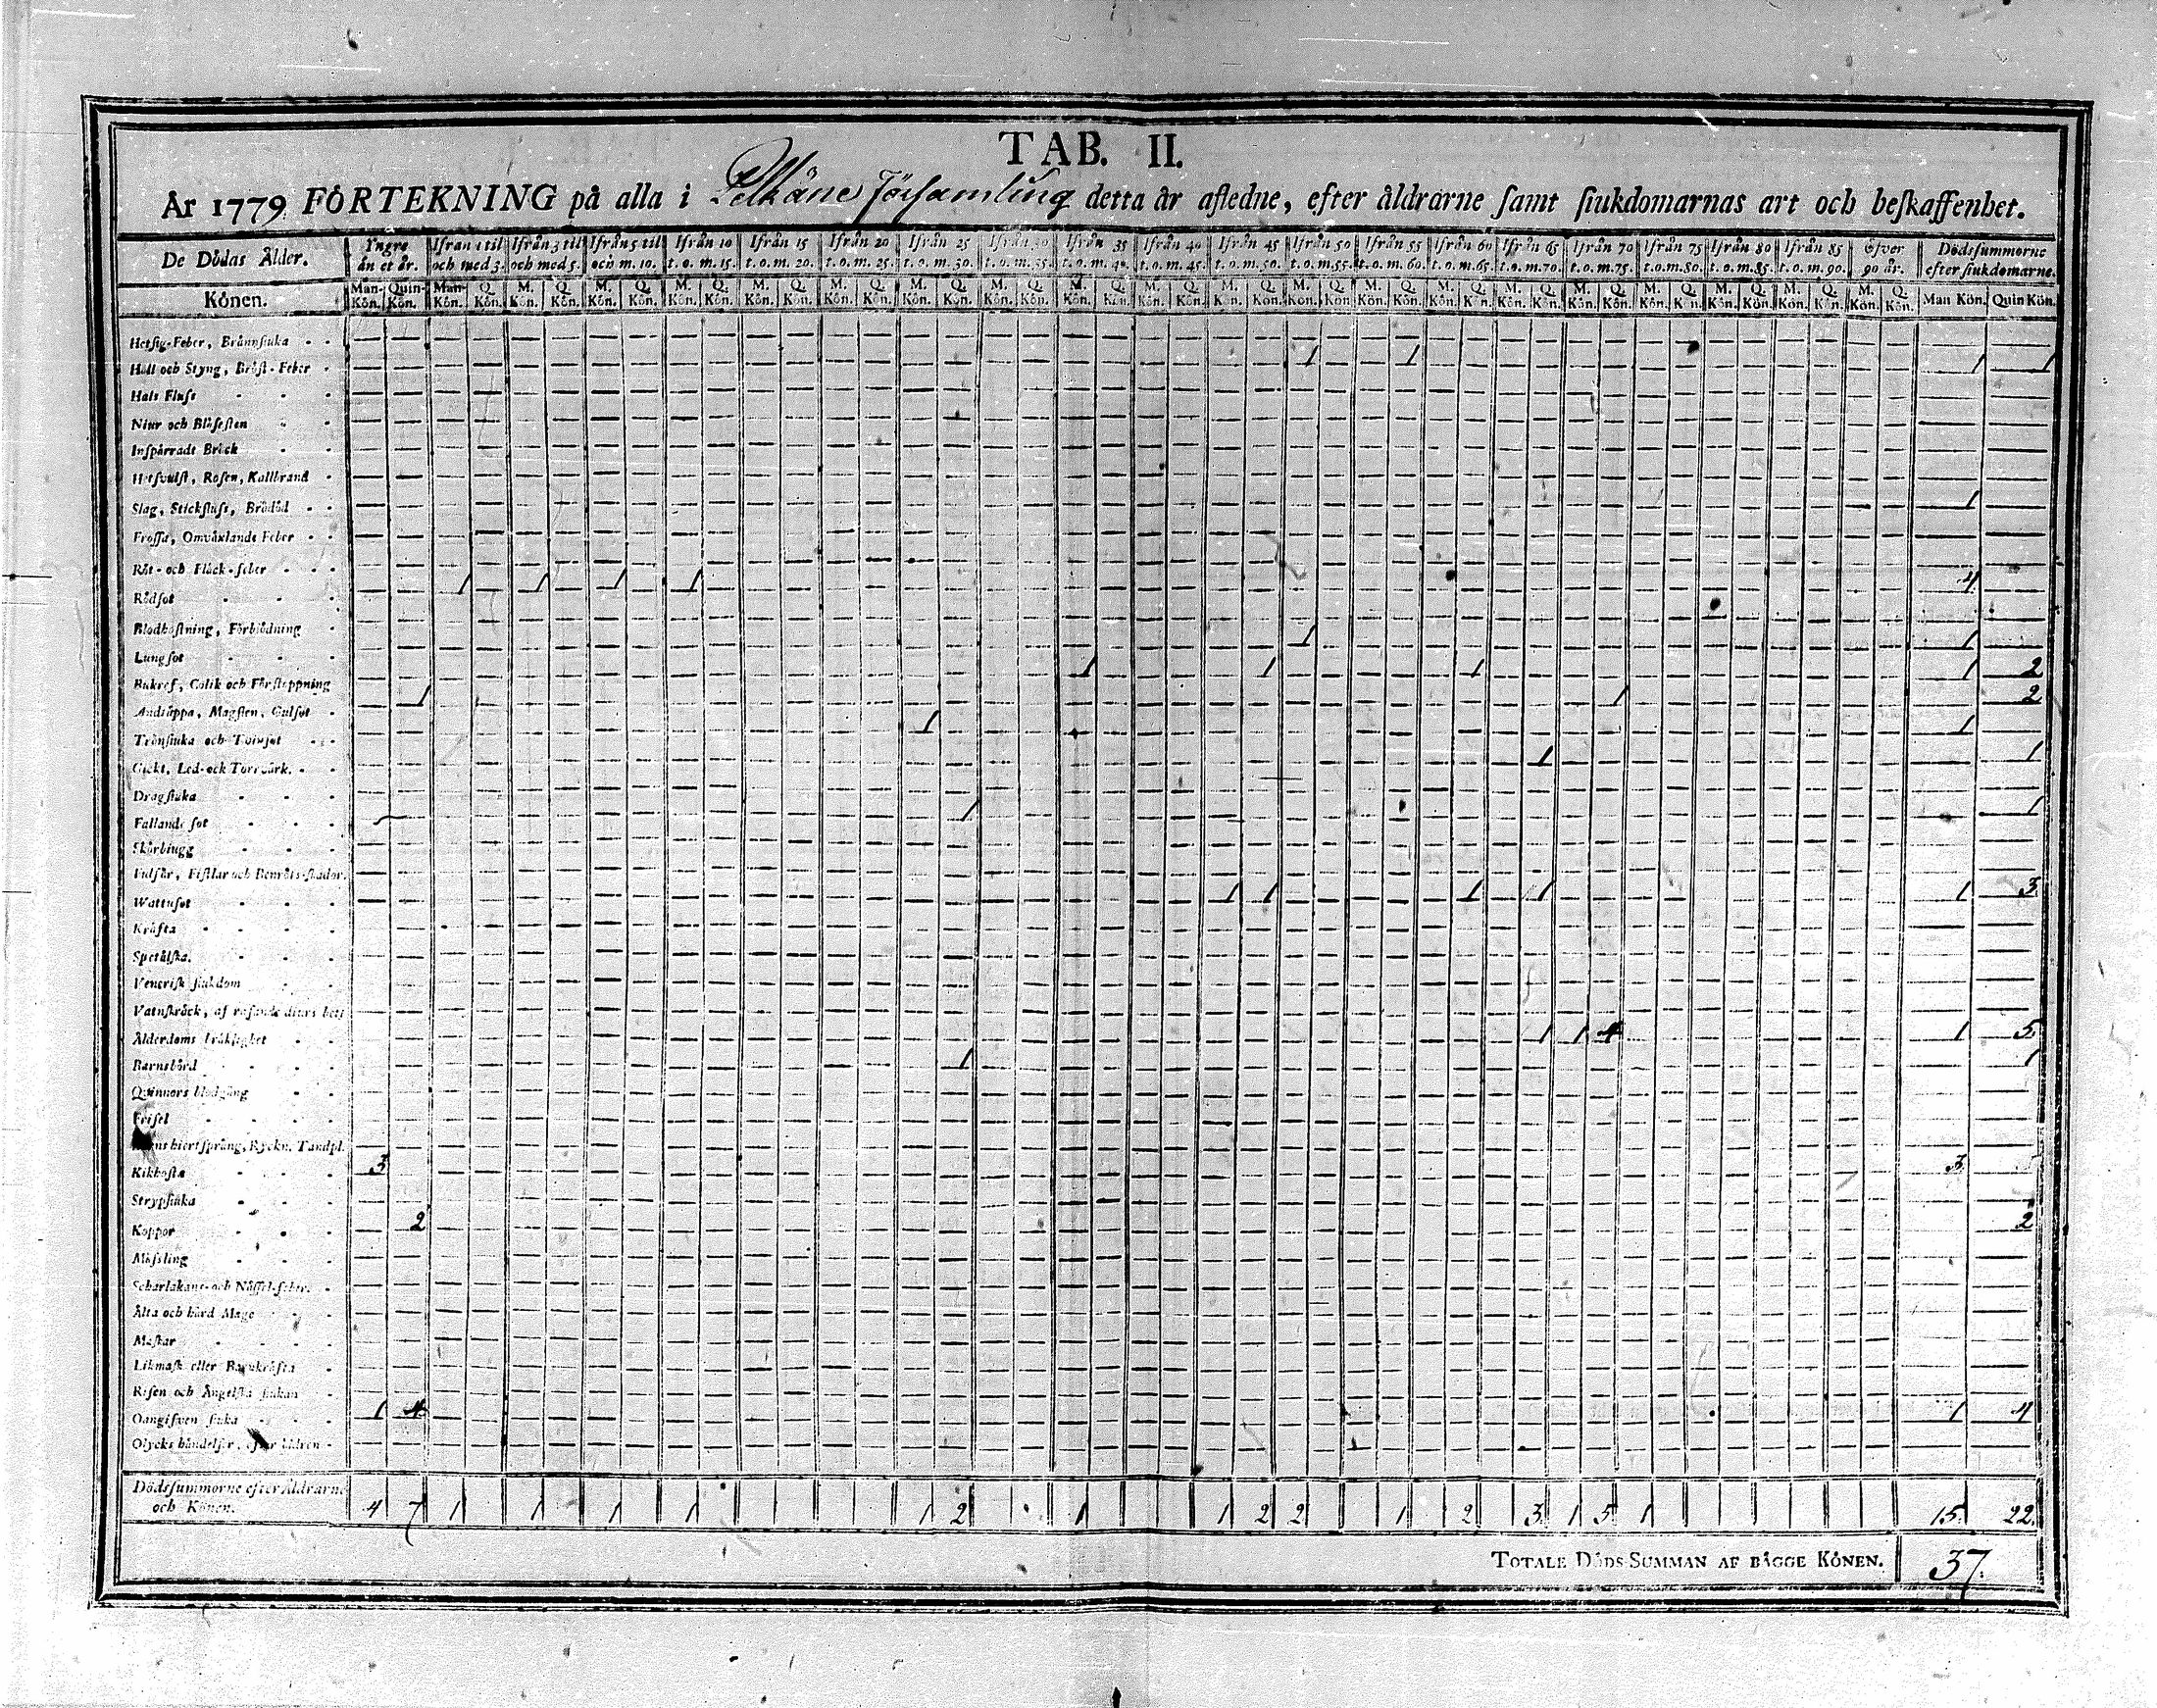 TAB. II.
År 1779 FÖRTEKNING på alla i Pelkäne Församling detta år afledne, efter åldrarne samt siukdomarnas art och beskaffenhet.
De Dödas Ålder. Yngre än et år. Ifrån 1 til och med 3. Ifrån 3 til och med 5. Ifrån 5 til och m. 10. Ifrån 10 t. o. m. 15. Ifrån 15 t. o. m. 20. Ifrån 20 t. o. m. 25. Ifrån 25 t. o. m. 30. Ifrån 30 t. o. m. 35. Ifrån 35 t. o. m. 40. Ifrån 40 t. o. m. 45. Ifrån 45 t. o. m. 50. Ifrån 50 t. o. m. 55. Ifrån 55 t. o. m. 60. Ifrån 60 t. o. m. 65. Ifrån 65 t. o. m. 70. Ifrån 70 t. o. m. 75. Ifrån 75 t. o. m. 80. Ifrån 80 t. o. m. 85. Ifrån 85 t. o. m. 90. Öfver 90 år. Dödssummorne efter siukdomarne.
Könen. Man-Kön. Quin-Kön. Man-Kön. Q. Kön. M. Kön. Q. Kön. M. Kön. Q. Kön. M. Kön. Q. Kön. M. Kön. Q. Kön. M. Kön. Q. Kön. M. Kön. Q. Kön. M. Kön. Q. Kön. M. Kön. Q. Kön. M. Kön. Q. Kön. M. Kön. Q. Kön. M. Kön. Q. Kön. M. Kön. Q. Kön. M. Kön. Q. Kön. M. Kön. Q. Kön. M. Kön. Q. Kön. M. Kön. Q. Kön. M. Kön. Q. Kön. M. Kön. Q. Kön. M. Kön. Q. Kön. Man Kön. Quin Kön.
Hetsig-Feber, Brännsiuka
Håll och Styng, Bröst-Feber 1 1 1 1
Hals Fluss
Niur och Blåsesten
Inspärradt Bråck
Hetsvulst, Rosen, Kallbrand
Slag, Stickfluss, Brådöd 1
Frossa, Omväxlande Feber
Röt- och Fläck-feber
Rödsot 1 1 1 1 4
Blodhostning, Förblödning
Lungsot 1 1
Bukref, Colik och Förstoppning 1 1 1 1 2
Andtäppa, Magsten, Gulsot 1 1 2
Trånsiuka och Tvinsot 1 1
Gickt, Led- och Torrvärk. 1 1
Dragsiuka
Fallande sot 1 1
Skörbiugg
Fulsår, Fistlar och Benröts-skador.
Wattusot 1 1 1 1 1 3
Kräfta
Spetälska.
Venerisk siukdom
Vatuskräck, af rasande diurs bett
Ålderdoms bräklighet 1 1 4 1 5
Barnsbörd 1 1
Quinnors blodgång
Frisel
hiertsprång, Ryckn. Tandpl.
Kikhosta 3 3
Strypsiuka
Koppor 2 2
Mässling
Scharlakans- och Nässel-feber.
Älta och hård Mage
Maskar
Likmask eller Barnkräfta
Risen och Ängelska siukan
Oangifven siuka 1 4 1 4
Olyckshändelser, efter bilden
Dödssummorne efter Åldrarne
och Könen. 4 7 1 1 1 1 1 2 1 1 2 2 1 2 3 1 5 1 15 22
TOTALE DÖDS-SUMMAN AF BÄGGE KÖNEN. 37.